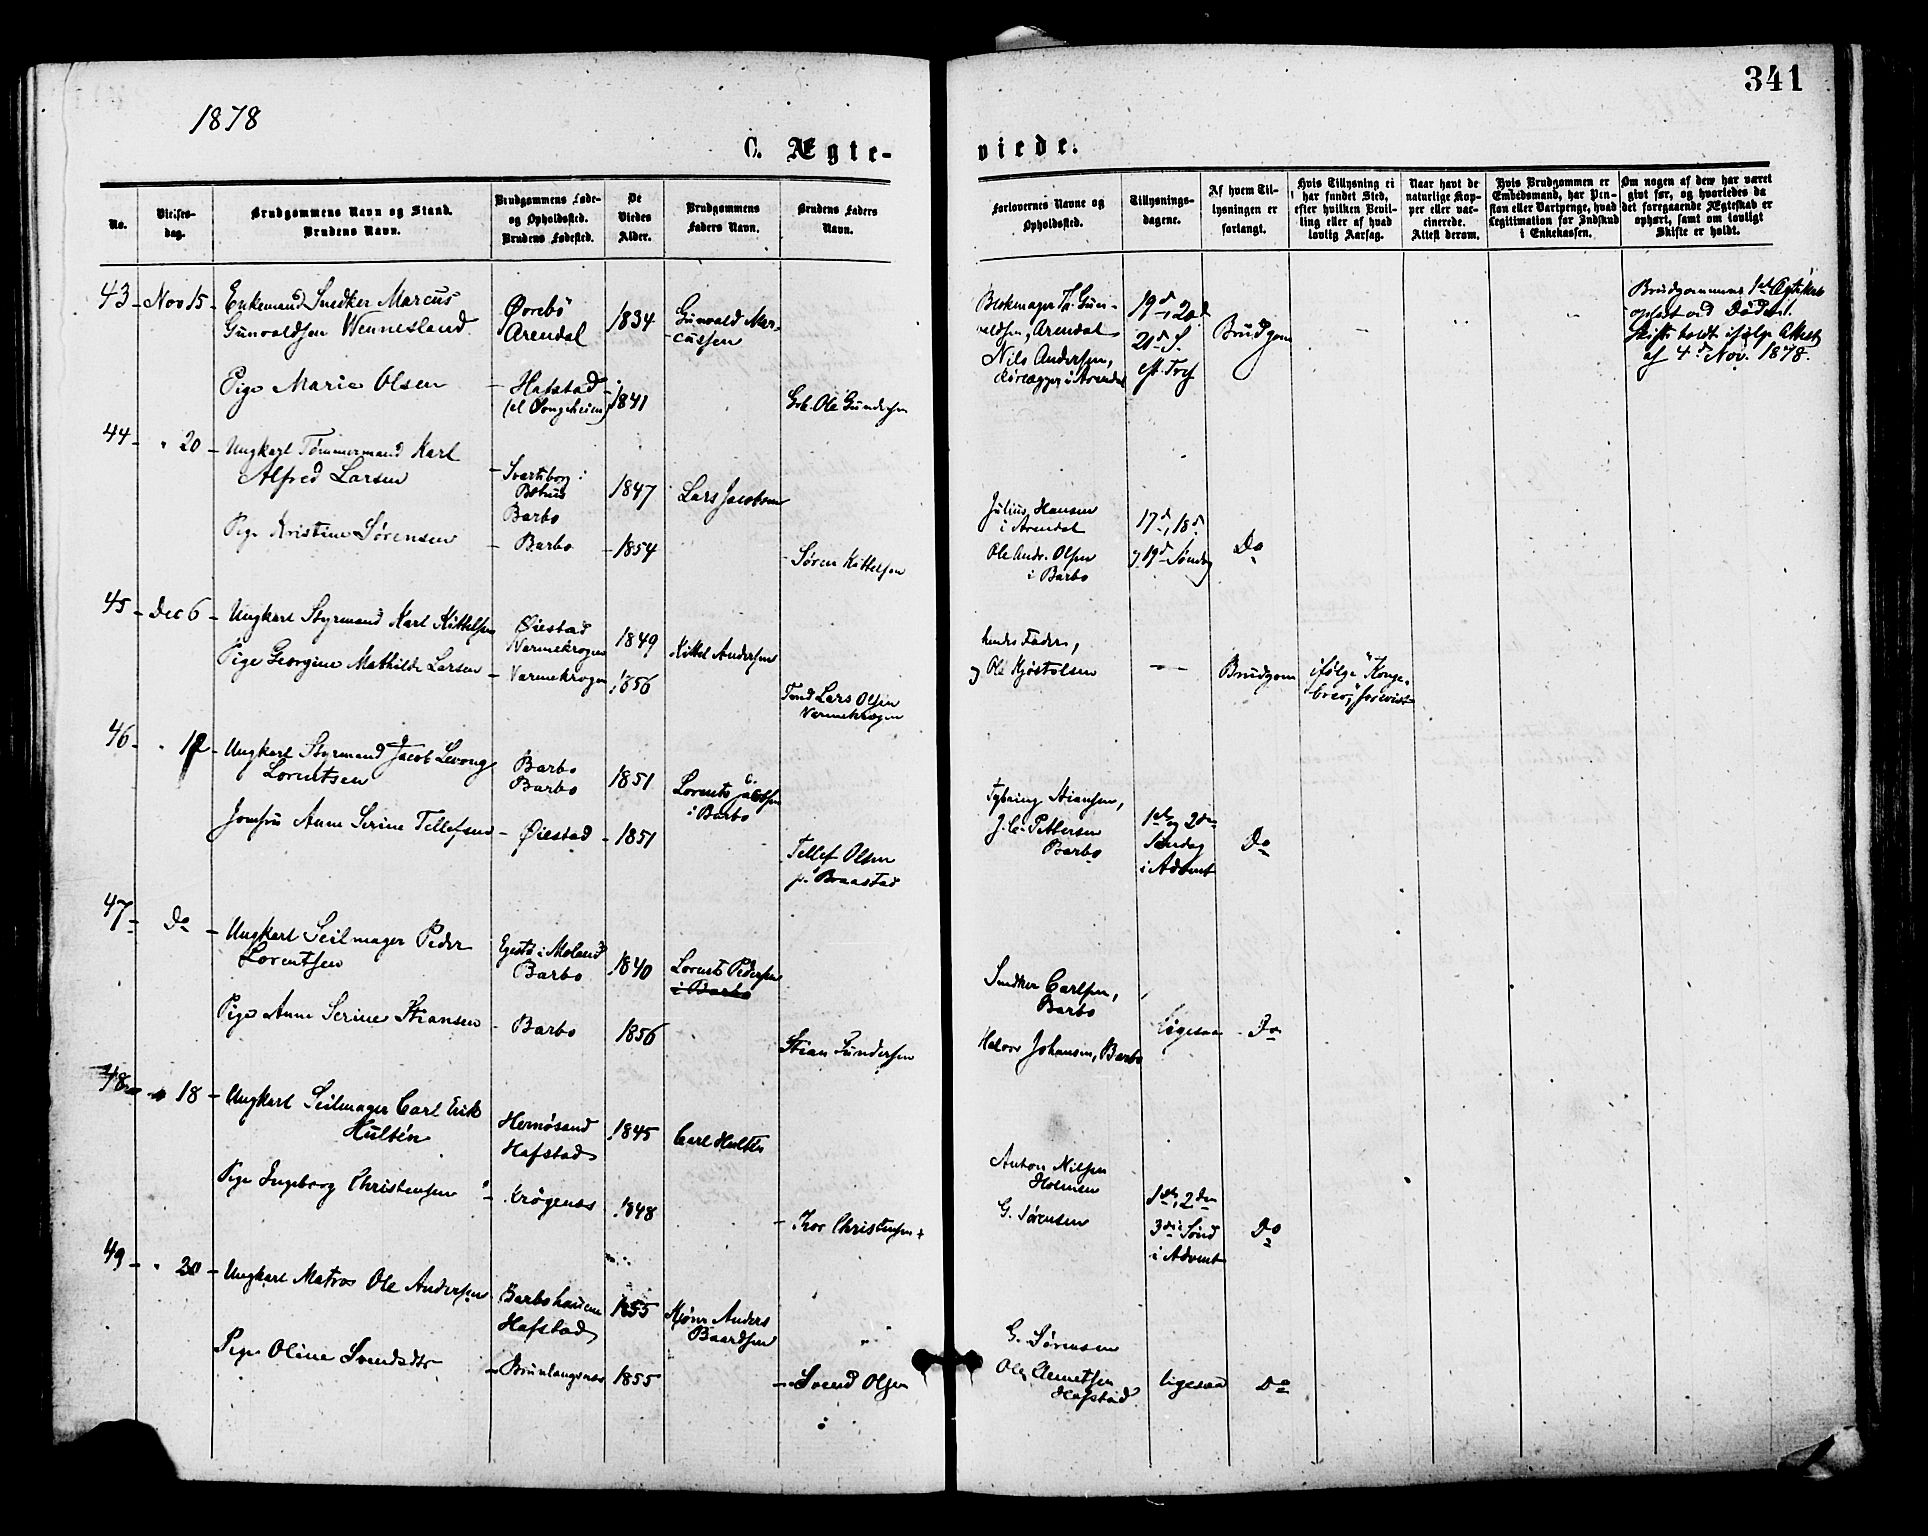 341
1878
C. Ægte-
viede.
No.
Vielses-
dag.
Brudgommens Navn og Stand.
Brudens Navn.
Brudgommens Føde-
og Opholdssted.
Brudens Fødested.
De
Viedes
Alder.
Brudgommens
Faders Navn.
Brudens Faders
Navn.
Forlovernes Navne og
Opholdssted.
Tillysnings-
dagene.
Af hvem Til-
lysningen er
forlangt.
Hvis Tillysning ei
har fundet Sted,
efter hvilken Bevil-
ling eller af hvad
lovlig Aarsag.
Naar havt de
naturlige Kop-
per eller vac-
cinerede.
Attest derom.
Hvis Brudgommen er
Embedsmand, har Pen-
sion eller Vartpenge, hvad
Legitimation for Indskud
i Enkekassen.
Om nogen af dem har været
gift før, og hvorledes da
det foregaaende Ægteskab er
ophørt, samt om lovligt
Skifte er holdt.
43 - Nov 15 - Enkemand Snedker Marcus
Gunvaldsen Wennesland
Øvrebö
Arendal
1834
Gunvald Mar-
cussen
Blokmager Th. Gun-
valdsen, Arendal
Nils Andersen,
i Arendal
19d, 20d
21d S.
eft. Tref
Brudgom
Brudgommens 1ste Ægteskab
ophørt ved Døden.
Skifte holdt ifølge Attest
af 4d Nov. 1878.
Pige Marie Olsen
- Hafstad
1841
Ole Gundersen
44 - " 20 - Ungkarl Tømmermand Karl
Alfred Larsen
Svarteborg i
Bohus
Barbo
1847
Lars Jacobsen
Pige Kristine Sørensen
- Barbo
- 1854
- Søren Kittelsen
Julius Hansen
i Arendal
Ole Andr. Olsen
i Barbo
17d, 18d
og 19d Søndag
Do
45 - Dec 6 - Ungkarl Styrmand Karl Kittelsen
Øiestad
Narmekrogen
1849
Kittel Andersen
Pige Georgine Mathilde Larsen
- Varmekrogen
1856
Lars Olsen
Varmekrogen
hendes Fader,
og Ole Kjøstolsen
Brudgom
ifølge "Konge-
brev," forevist
46 - " 12 - Ungkarl Styrmand Jacob Levong
Lorentsen
Barbo
Barbo
1851
Lorents Jacobsen
i Barbo
Jomfru Anne Serine Tellefsen
- Øiestad
- 1851
Tellef Olsen
p. Braastad
Stiansen,
J. C. Pettersen
Barbo
1ste og 2den
Søndag
i Advent
Do
47 - Do - Ungkarl Seilmager Peder
Lorentsen
i Moland
Barbo
1840
Lorents Pedersen
i Barbo
Pige Anne Serine Stiansen
- Barbo
1856
Stian Gundersen
Snedker Carlsen,
Barbo
Halvor Johansen, Barbo
ligesaa
Do
48 - " 18 - Ungkarl Seilmager Carl Erik
Hultén
Hernösand
Hafstad
1845
Carl Hultén
Pige Ingeborg Christensen
- Krøgenes
1848
- Thor Christensen +
Anton Nilsen
Holmen
G. Sørensen
1ste, 2den
3die Sønd
i Advent
Do
49 - " 20 - Ungkarl Matros Ole Andersen
Barbohauene
Hafstad
1855
Anders
Baardsen
Pige Oline Svendsdtr
- Brunlangenes
1855
- Svend Olsen
G. Sørensen
Ole Clemetsen
Hafstad
ligesaa
Do